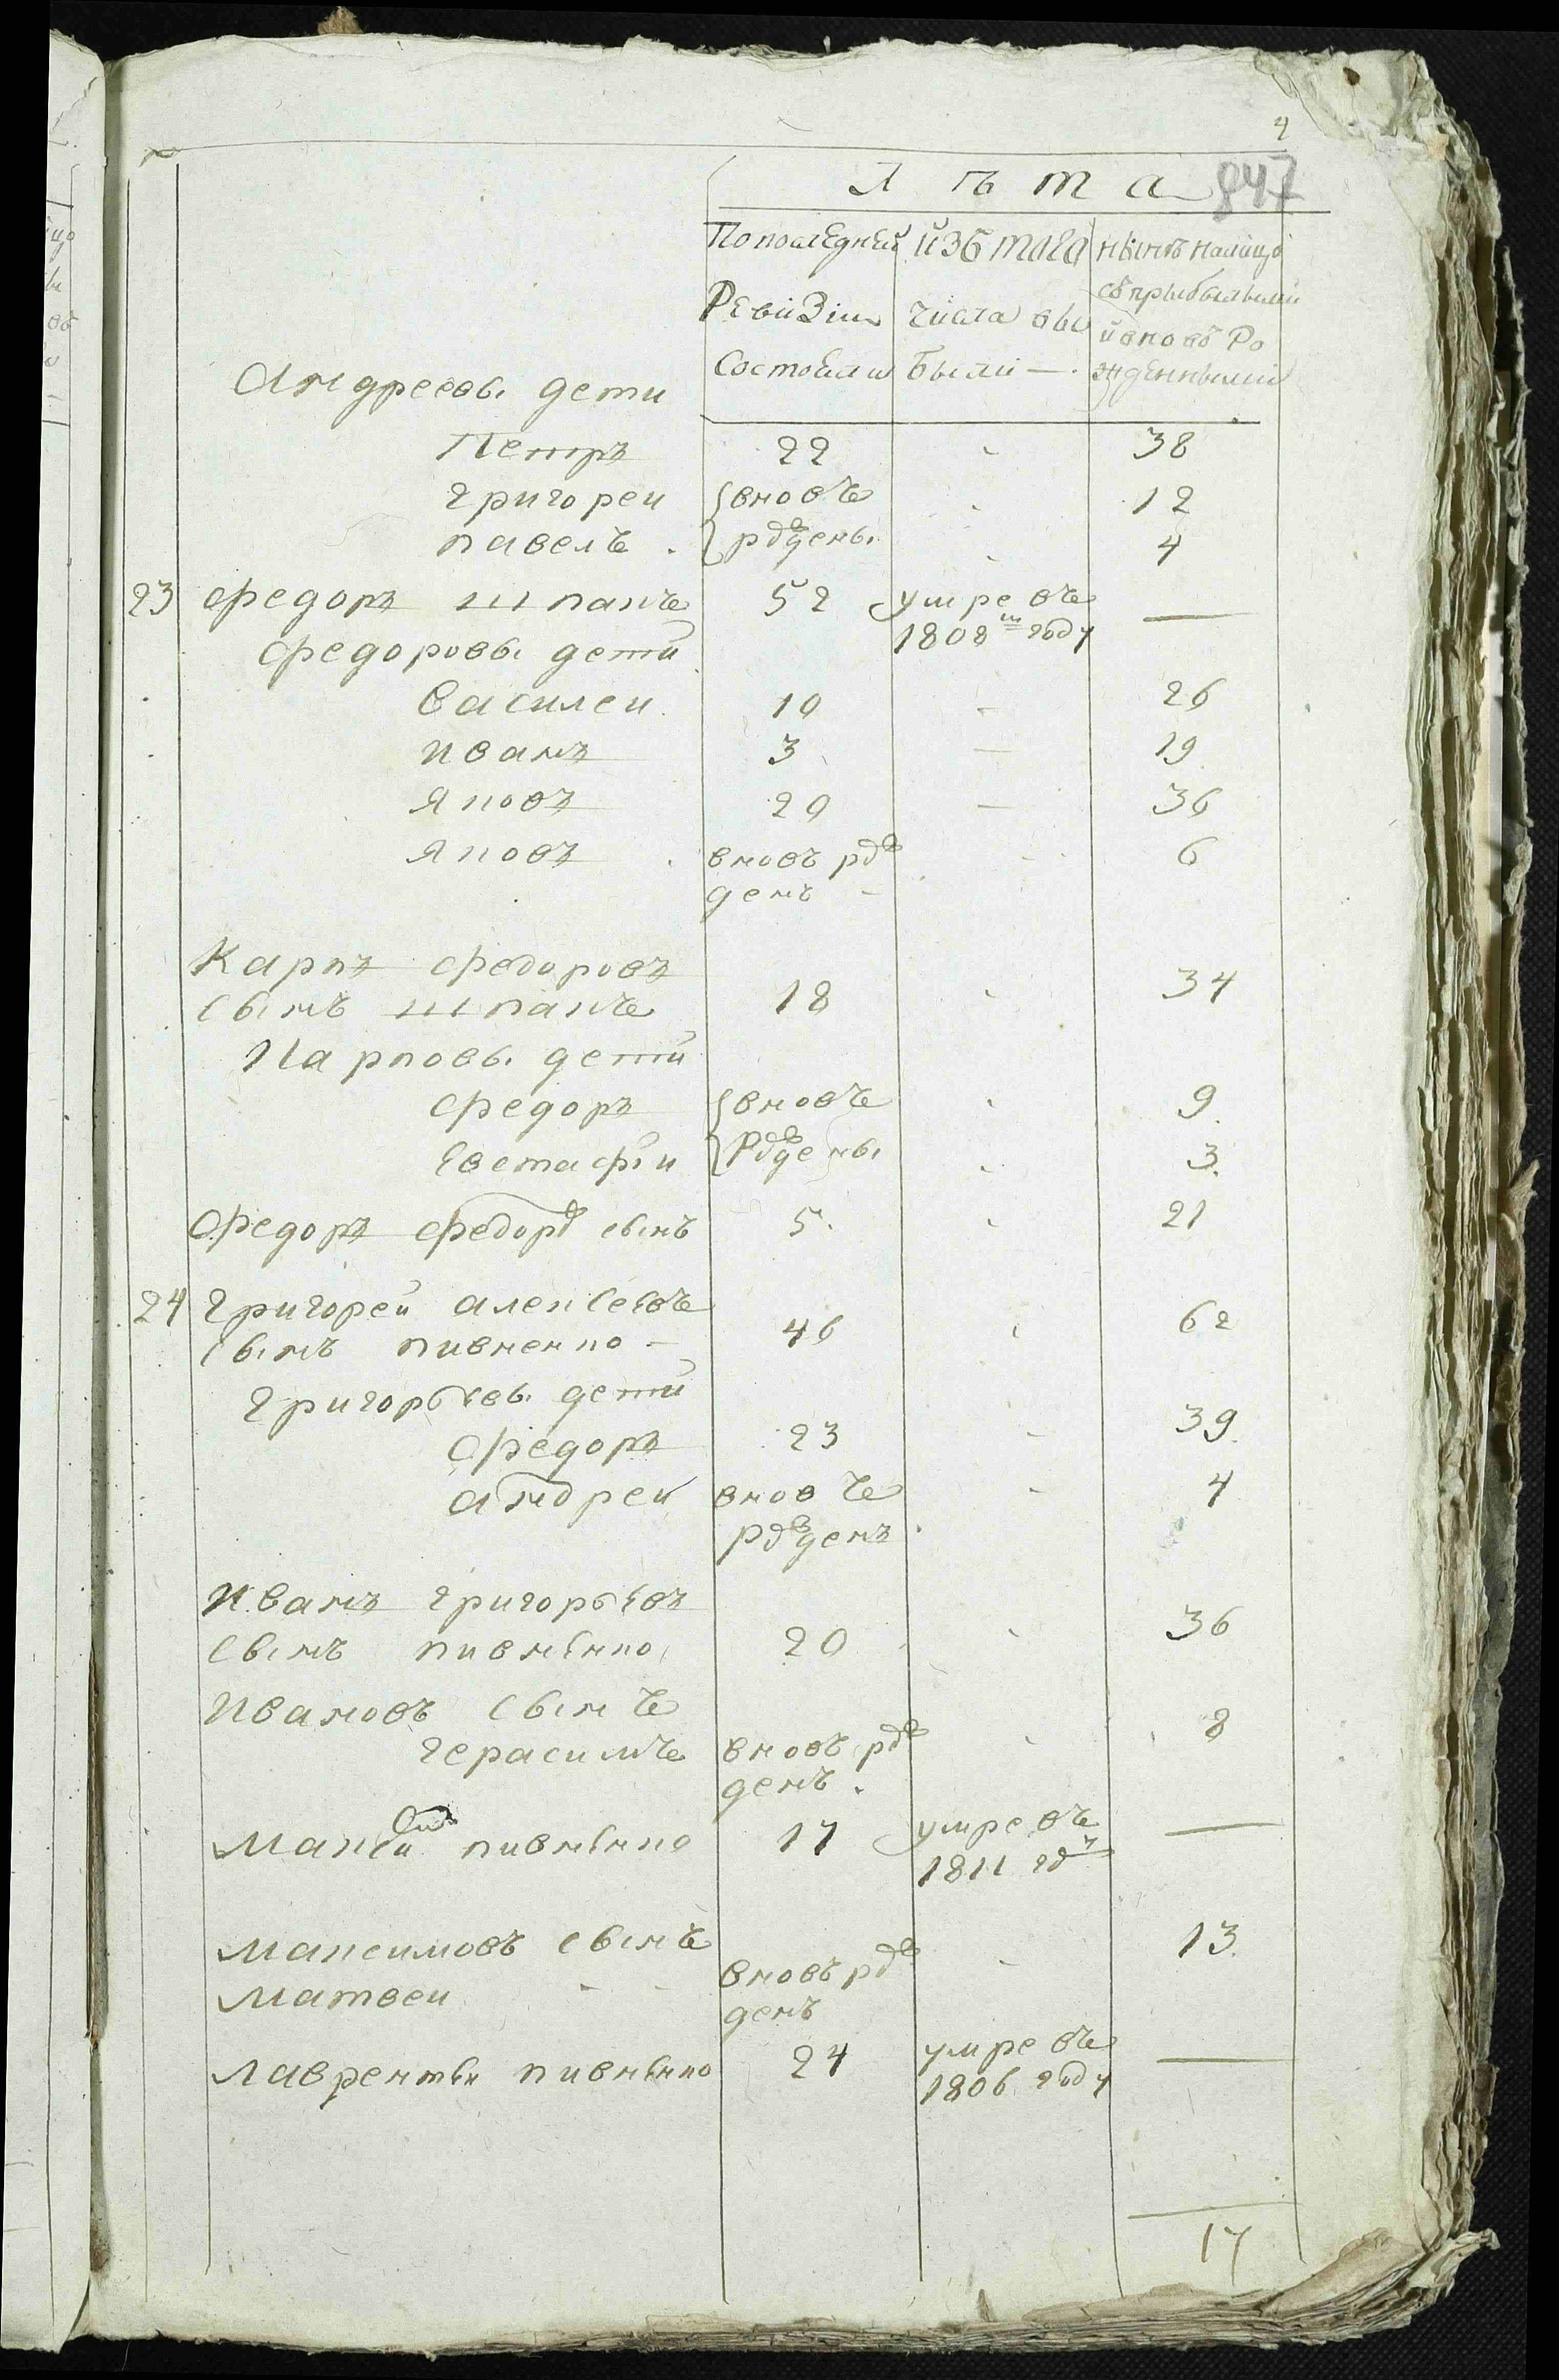 4
847
Лѣта
По последней
Ревизіи
Состояли
изъ того
числа вы
были —
нынѣ налицо
съ прибылыми
и вновь ро
жденными
Андреевы дети
Петръ 22 38
Григореи вновь 12
павелъ рдвдены 4
23 Федоръ шпакъ 52 умре въ —
1808м году
Федоровы дети
Василеи 10 — 26
Иванъ 3 — 19
Яковъ 20 — 36
Яковъ вновъ рдв 6
денъ —
Карпъ Федоровъ
сынъ шпакъ 18 34
Карповы дети
Федоръ вновь 9
Евстафіи рдвдены 3
Федоръ Федорв сынъ 5 21
24 Григорей алексеевъ
сынъ пивненко — 46 62
Григорьевы дети
Федоръ 23 39
андреи вновь 4
рдвденъ
Иванъ григорьевъ
сынъ пивненко 20 36
Ивановъ сынъ
герасимъ вновъ рдв 8
денъ
Максим пивненко 17 умре въ —
1811 гду
Максимовъ сынъ 13
Матвеи — — вновъ рдв
денъ
Лаврентеи пивненко 24 умре въ —
1806 году
17